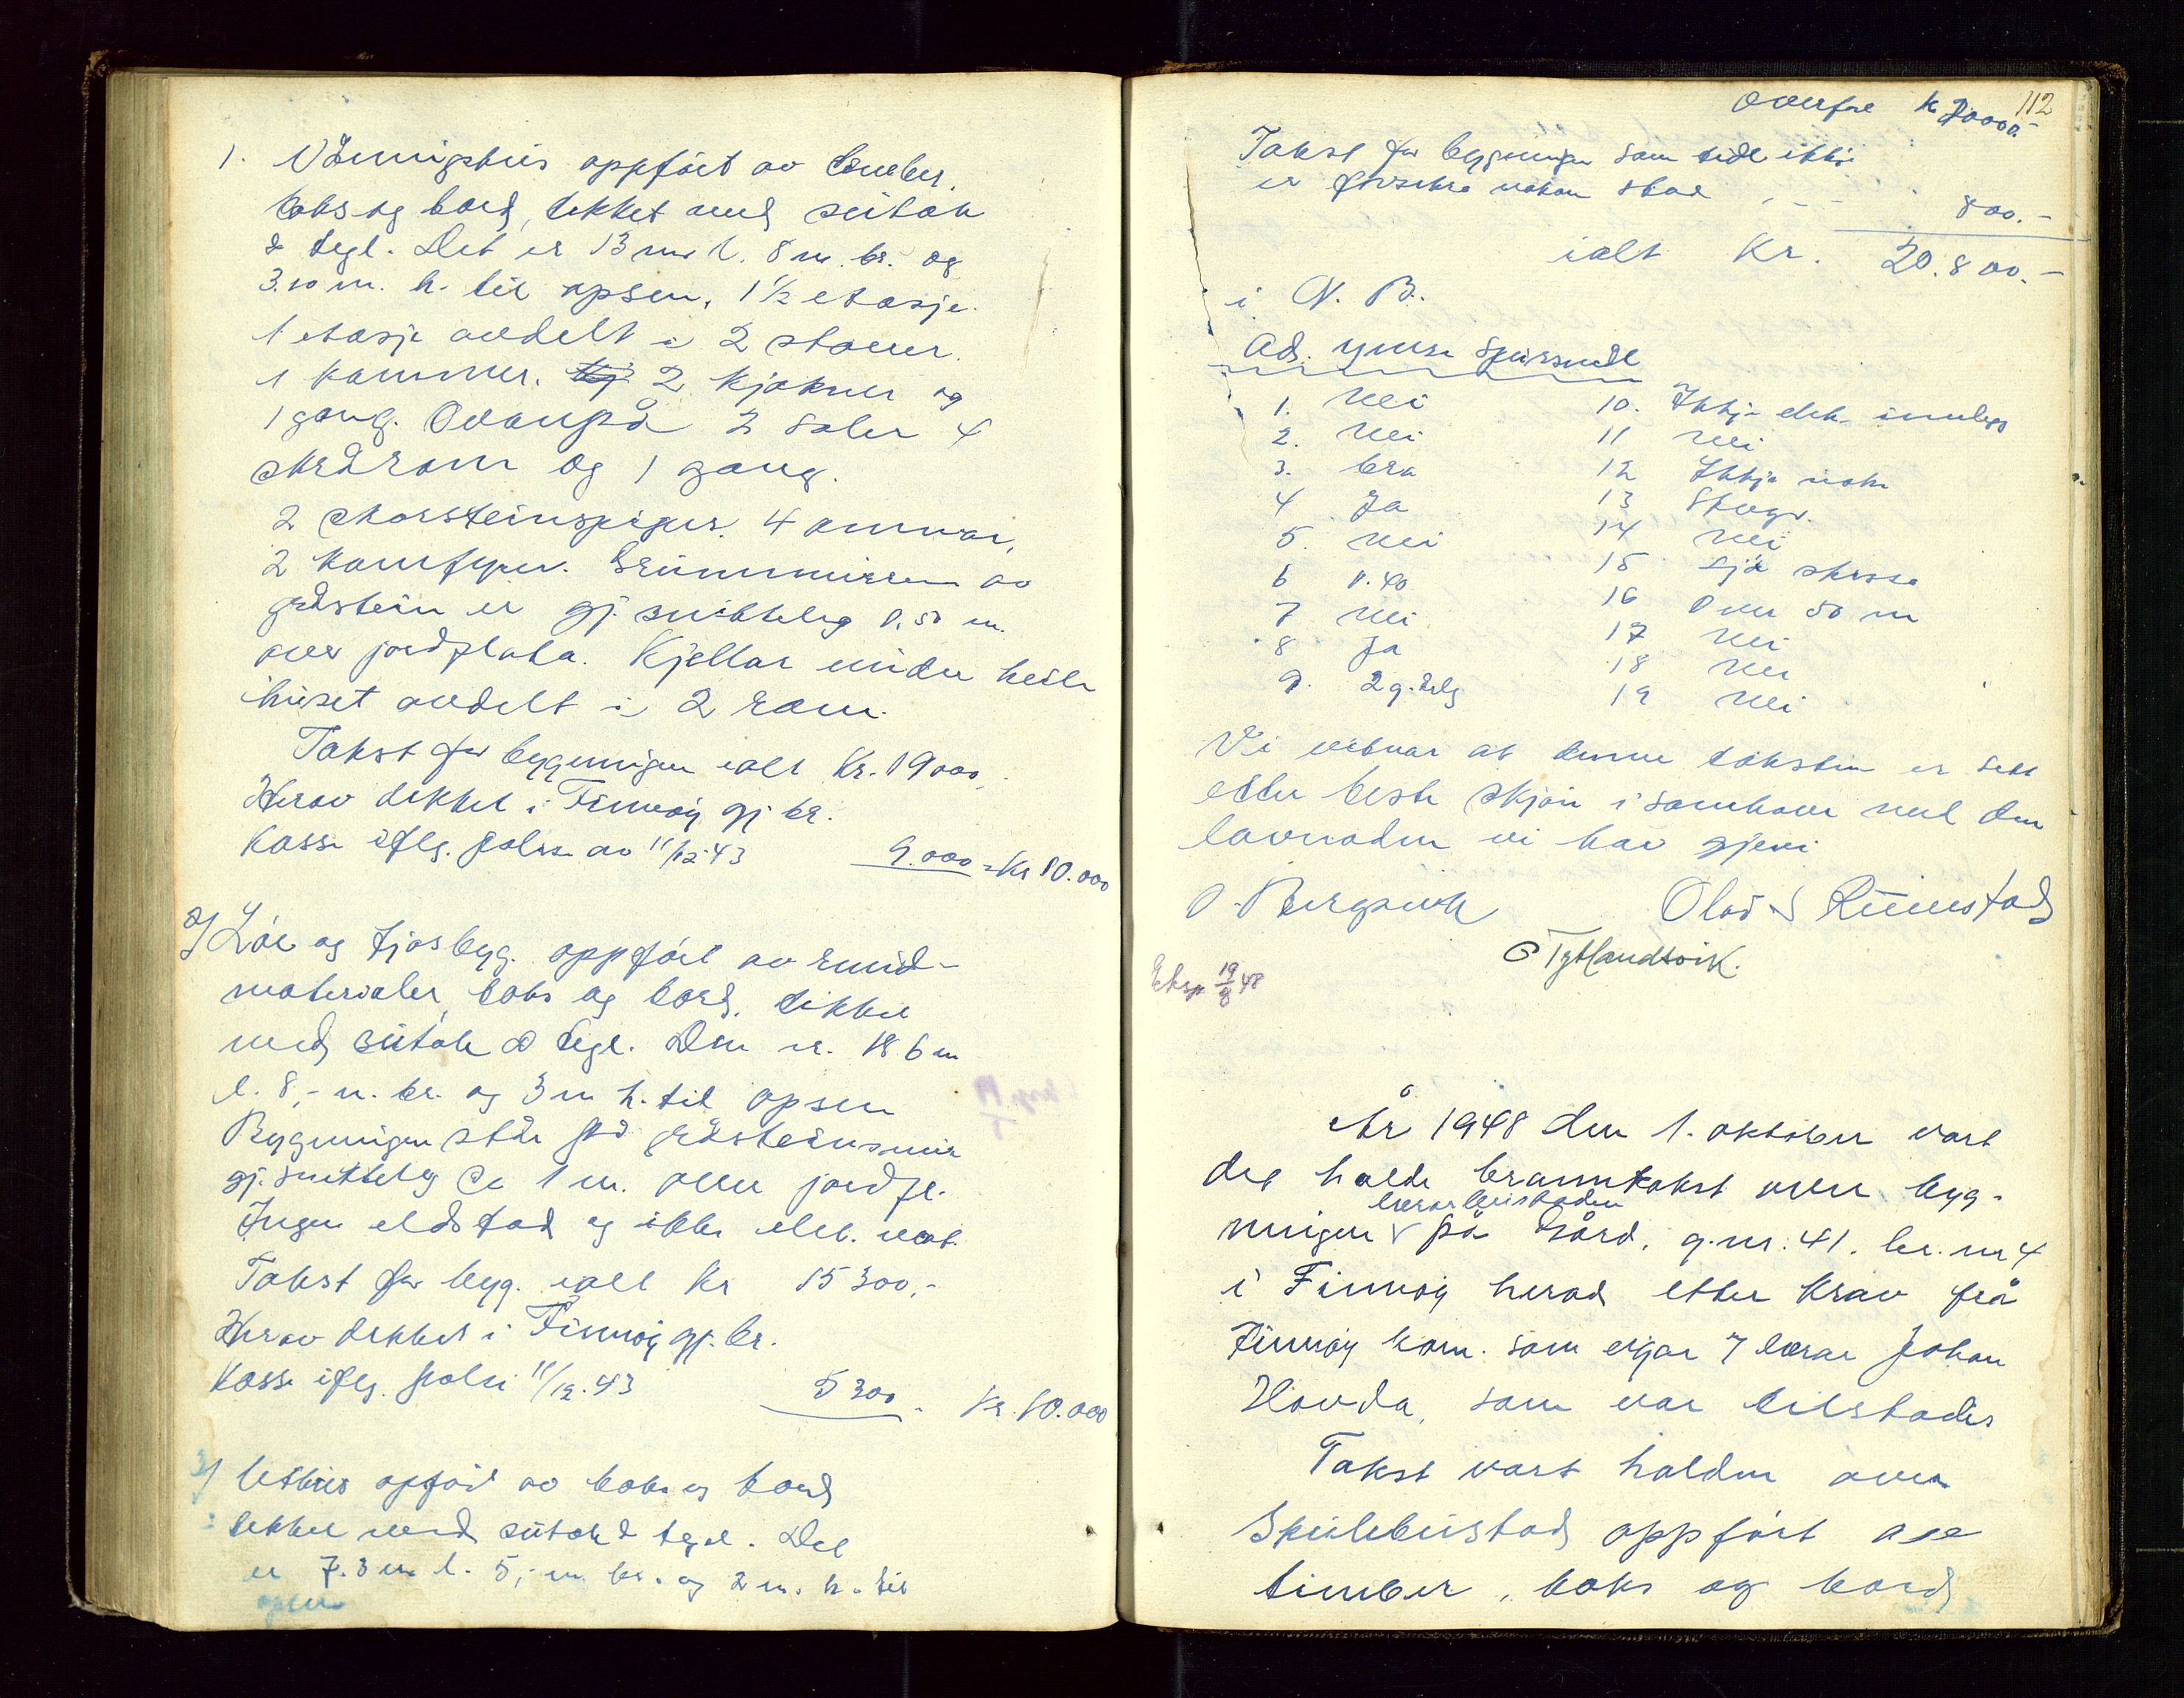 1. Våningshus oppført av tømber,
boks og bord, tekket med sutak
& tegl. Det er 13 m l. 8 m. br. og
3.10 m. h. til opsen, 1 1/2 etasje.
1 etasje avdelt i 2 stover.
1 kammer. 2 kjøkner og
1 gang. Ovanpå 2 saler 4
skrårom og 1 gang.
2 skorsteinspipor. 4 omnar,
2 komfyrer. Grunnmuren av
gråstein er gj. snittleg 0.50 m.
over jordflata. Kjellar under heile
huset avdelt i 2 rom.
Takst for bygningen ialt kr. 19000,
Herav dekket i Finnøy gj. br.
kasse iflg. polise av 11/12-43 9.000 = Kr 10.000
2) Løe og fjosbyg. oppført av rund-
materialer, boks og bord, tekket
med sutak & tegl. Den er. 18.6 m
l. 8,- m. br. og 3 m h. til opsen
Bygningen står på gråsteinsmur
gj. snittleg ca 1 m. over jordfl.
Ingen eldstad og ikke elek.
Takst for byg. ialt kr 15300,-
Herav dekket i Finnøy gj. br.
kasse iflg. polise 11/12.43 5300 - Kr. 10.000
3) Uthus opført av boks og bord
tekket med sutak & tegl. Det
er 7.3 m l. 5,- m. br. og 2 m. h. til
opsen
112
Overført kr 20000.-
Takst for bygninger som tidl ikkje
er forsikra nokon stad 800.-
ialt Kr. 20.800.-
i N. B.
Ad. ymse spursmål
1. Nei 10. Ikkje elek. innlegg
2. Nei 11 Nei
3. bra 12 Ikkje noko
4 Ja 13 Skogv.
5. Nei 14 Nei
6 0.40 15 Sjå skissa
7 Nei 16 Over 50 m
8 Ja 17 Nei
9. 2 g. årleg 18 Nei
19 Nei
Vi vitnar at denne taksten er sett
etter beste skjøn i samhøve med den
lovnaden vi har gjevi
O. Bergsvik Olav S Rimestad
G Tytlandsvik.
Eksp 19/8 48
År 1948 den 1. oktober vart
det halde branntakst over byg-
lærarbustaden
ningen v på Gård, g.nr. 41. br. nr 4
i Finnøy herad etter krav frå
Finnøy kom. som eigar v lærar Johan
Hovda, som var tilstades
Takst vart halden over
Skulebustad oppført av
timber, boks og bord